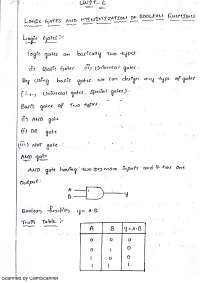 UNIT-2
LOGIC GATES AND MINIMIZATION OF BOOLEAN FUNCTIONS
Logic Gates :-
Logic gates are basically two types
(i) Basic Gates (ii) Universal gates.
By using basic gates we can design any type of gates
(i.e., Universal gates, special gates).
Basic gates of two types.
(i) AND gate
(ii) OR gate
(iii) NOT gate
AND gate
AND gate having two or more inputs and it has one
output.
A
B
y
Boolean function y = A·B
Truth Table :-
A B y=A·B
0 0 0
0 1 0
1 0 0
1 1 1
Scanned by CamScanner